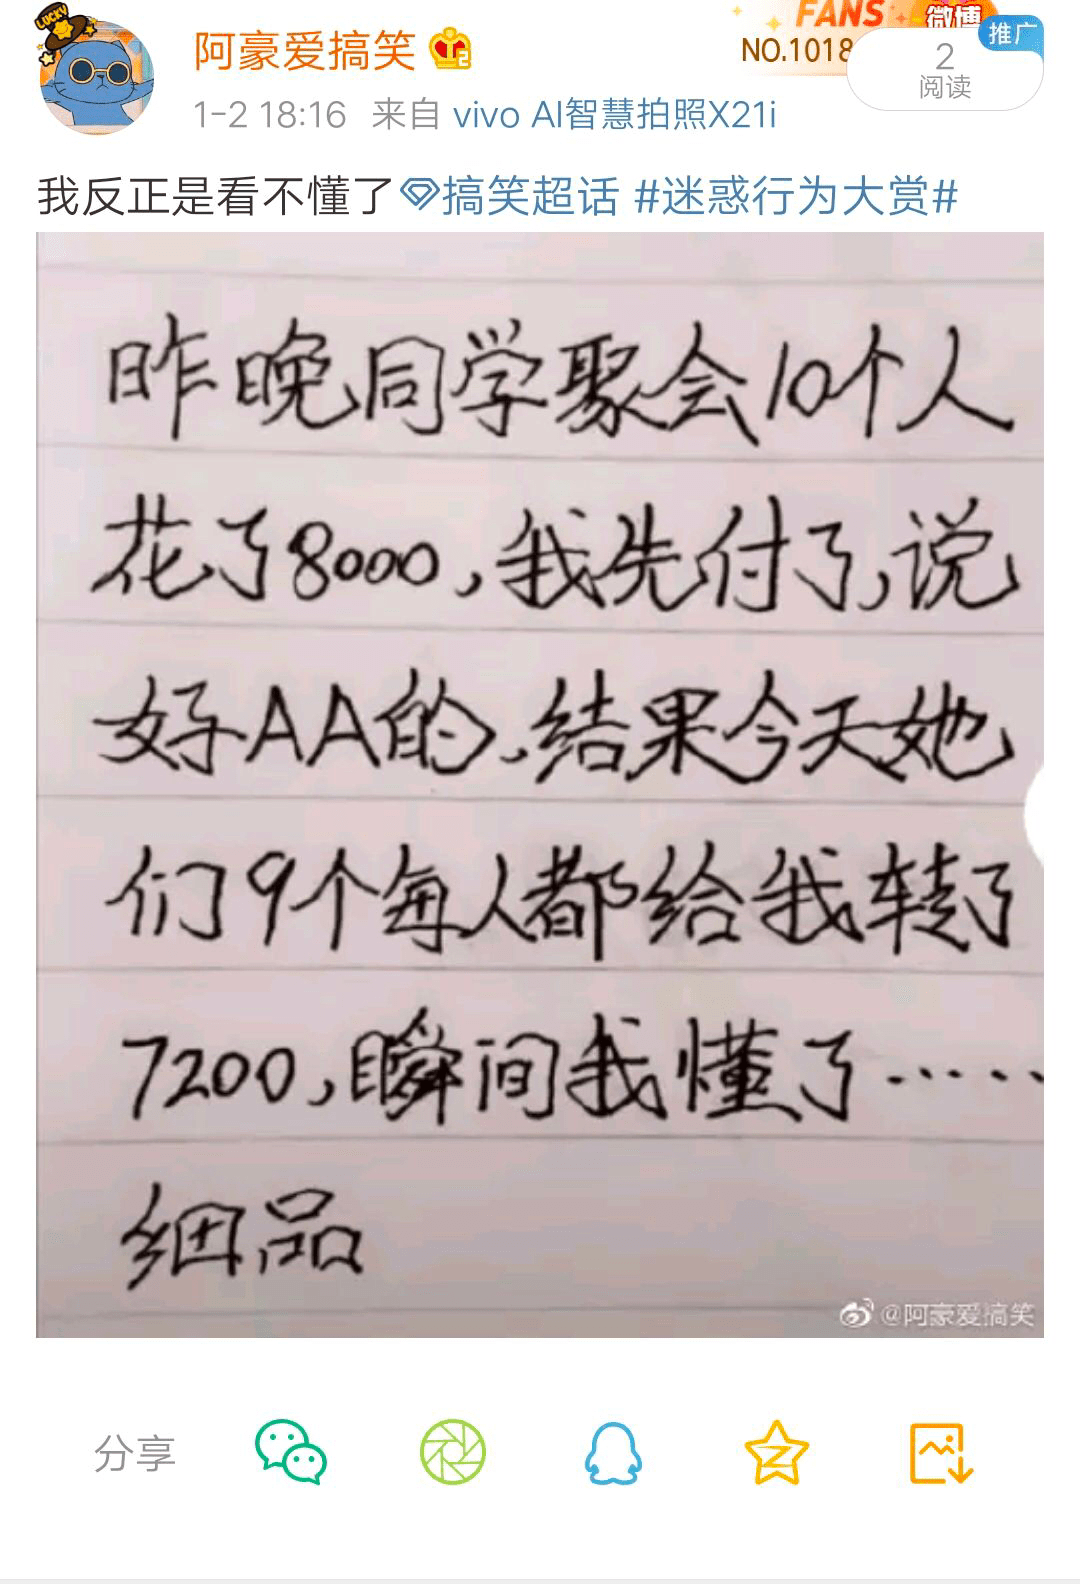 LUCKY
阿豪爱搞笑
FANS 微博
NO.1018
2
阅读
推广
1-2 18:16 来自 vivo AI智慧拍照X21i
我反正是看不懂了搞笑超话 #迷惑行为大赏#
昨晚同学聚会10个人
花了8000,我先付了,说
好AA的,结果今天她
们9个每人都给我转了
7200,瞬间我懂了……
细品
@阿豪爱搞笑
分享